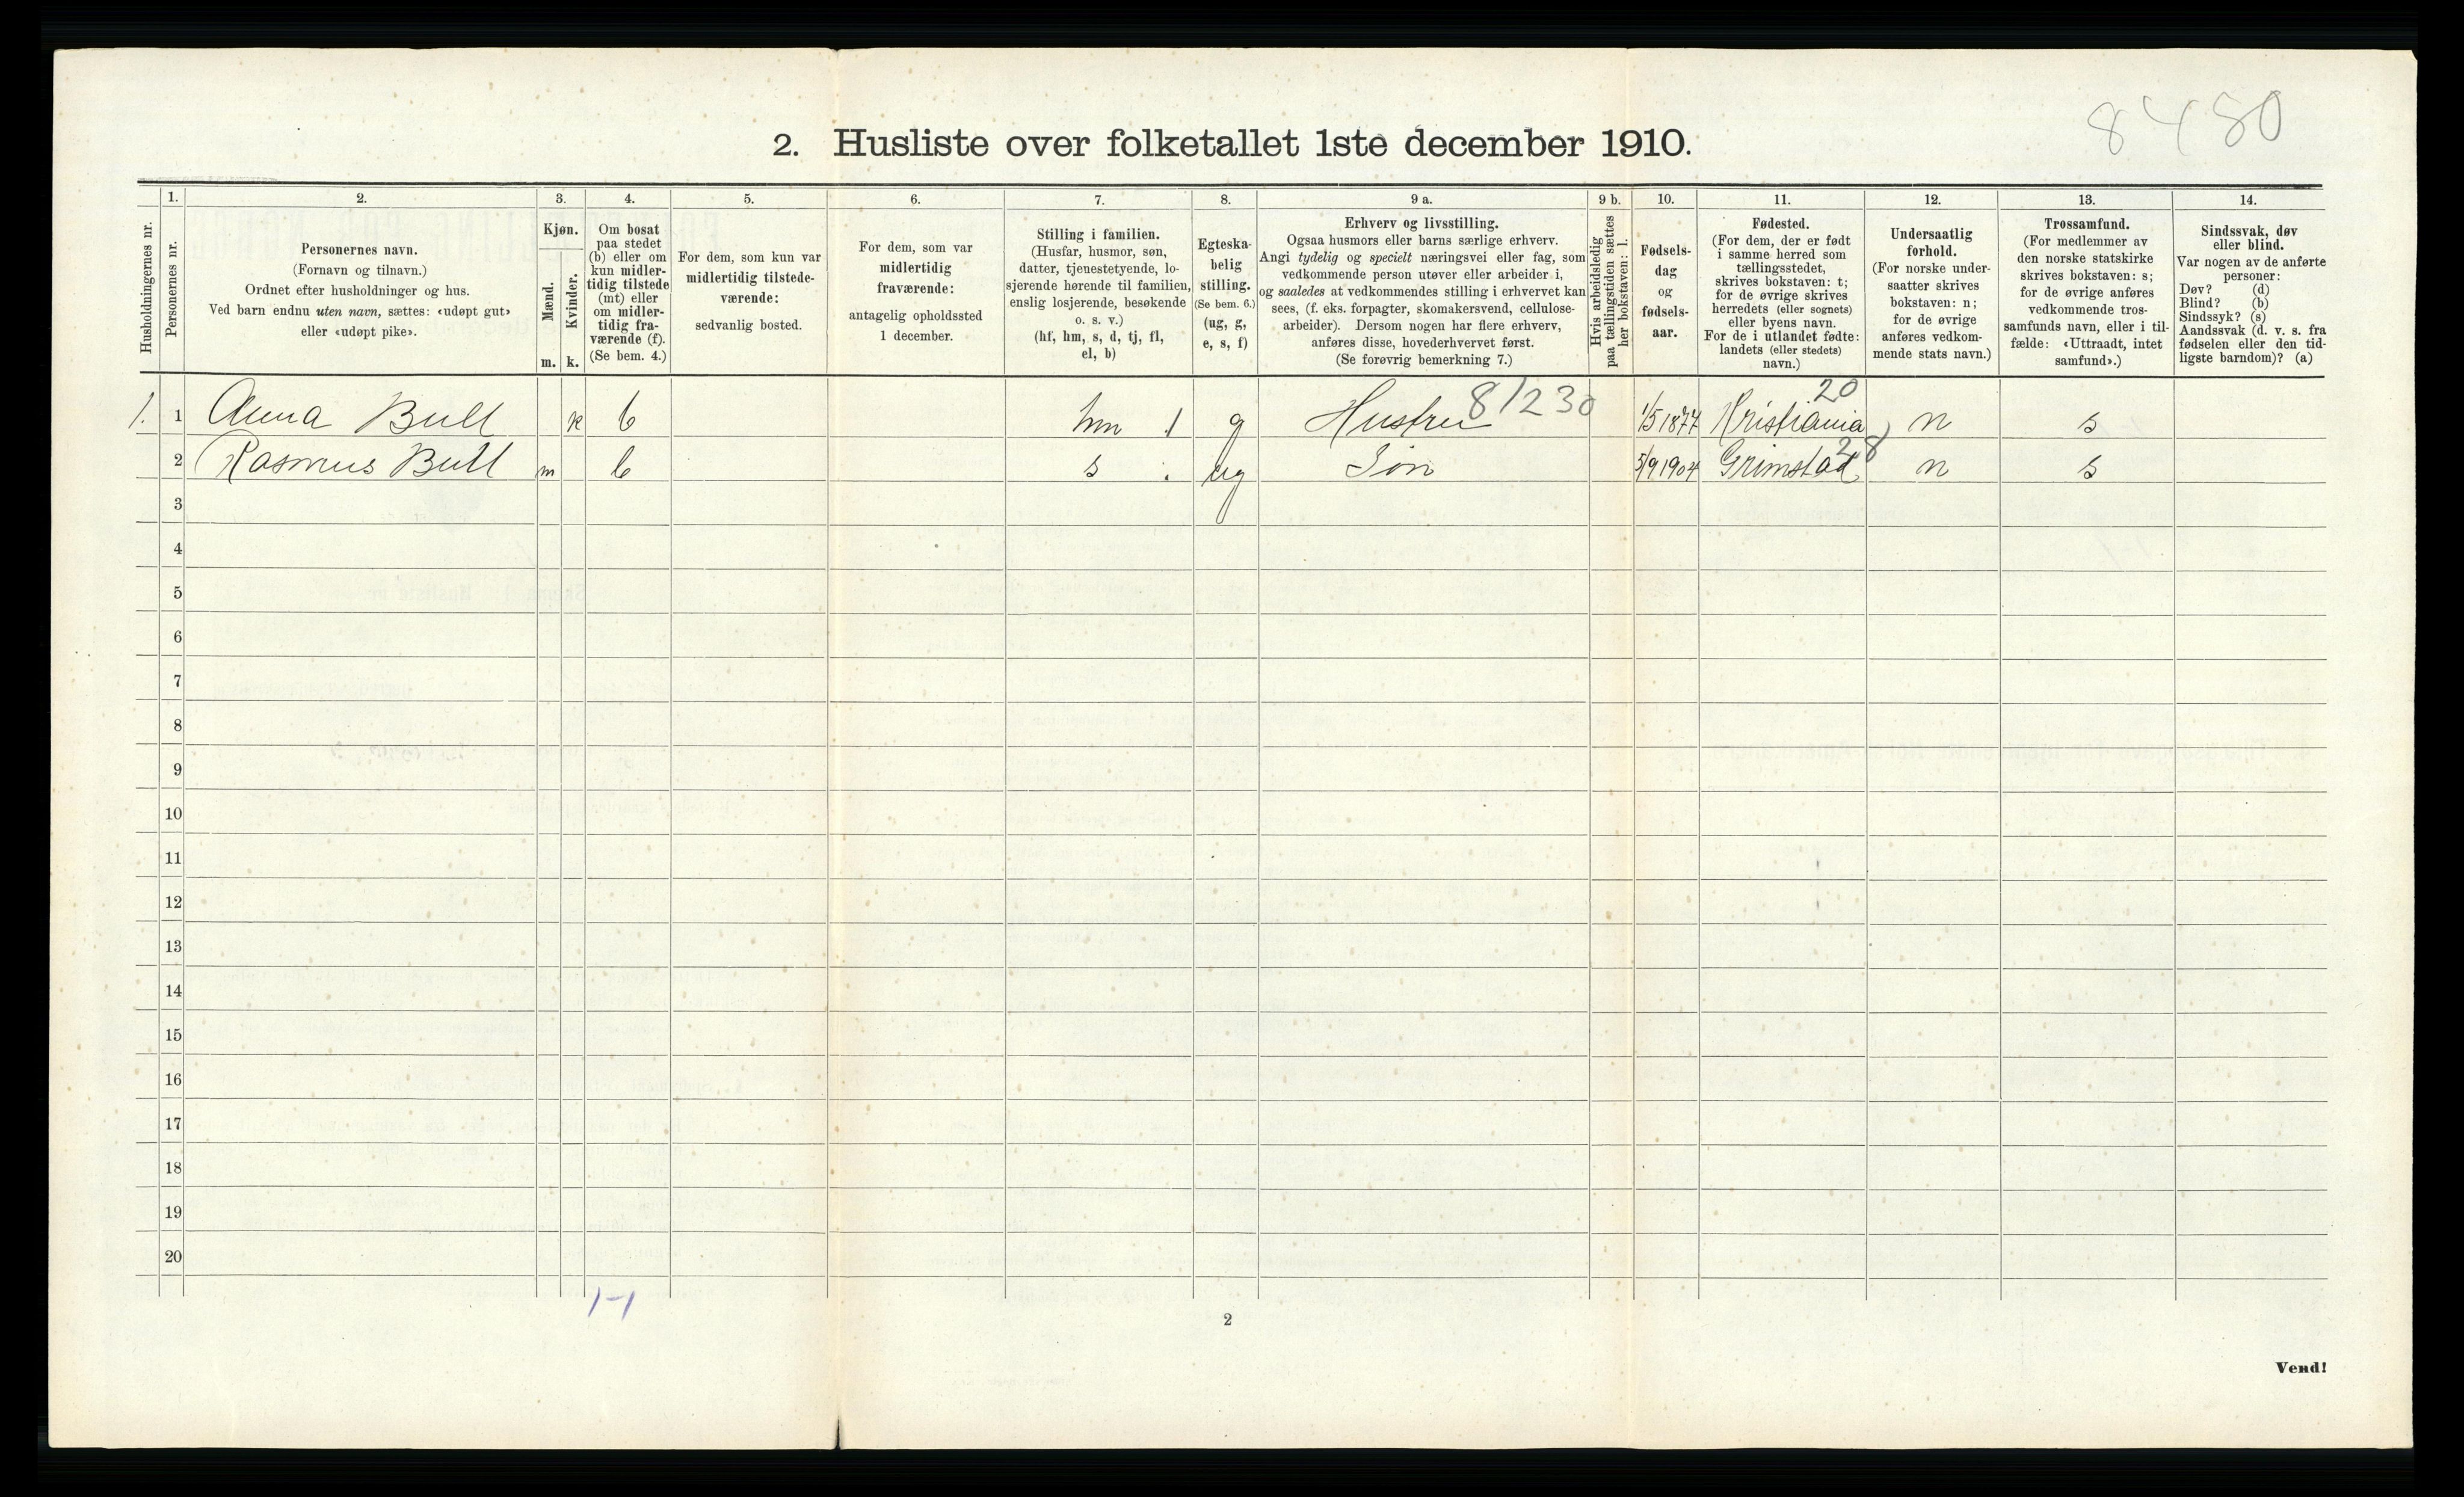 8480
2. Husliste over folketallet 1ste december 1910.
Husholdningernes nr.
1.
Personernes nr.
2.
Personernes navn.
(Fornavn og tilnavn.)
Ordnet efter husholdninger og hus.
Ved barn endnu uten navn, sættes: «udøpt gut»
eller «udøpt pike».
3.
Kjøn.
Mænd.
Kvinder.
m. k.
4.
Om bosat
paa stedet
(b) eller om
kun midler-
tidig tilstede
(mt) eller
om midler-
tidig fra-
værende (f).
(Se bem. 4.)
5.
For dem, som kun var
midlertidig tilstede-
værende:
sedvanlig bosted.
6.
For dem, som var
midlertidig
fraværende:
antagelig opholdssted
1 december.
7.
Stilling i familien.
(Husfar, husmor, søn,
datter, tjenestetyende, lo-
sjerende hørende til familien,
enslig losjerende, besøkende
o. s. v.)
(hf, hm, s, d, tj, fl,
el, b)
8.
Egteska-
belig
stilling.
(Se bem. 6.)
(ug, g,
e, s, f)
9 a.
Erhverv og livsstilling.
Ogsaa husmors eller barns særlige erhverv.
Angi tydelig og specielt næringsvei eller fag, som
vedkommende person utøver eller arbeider i,
og saaledes at vedkommendes stilling i erhvervet kan
sees, (f. eks. forpagter, skomakersvend, cellulose-
arbeider). Dersom nogen har flere erhverv,
anføres disse, hovederhvervet først.
(Se forøvrig bemerkning 7.)
9 b.
Hvis arbeidsledig
paa tællingstiden sættes
her bokstaven: l.
10.
Fødsels-
dag
og
fødsels-
aar.
11.
Fødested.
(For dem, der er født
i samme herred som
tællingsstedet,
skrives bokstaven: t;
for de øvrige skrives
herredets (eller sognets)
eller byens navn.
For de i utlandet fødte:
landets (eller stedets)
navn.)
12.
Undersaatlig
forhold.
(For norske under-
saatter skrives
bokstaven: n;
for de øvrige
anføres vedkom-
mende stats navn.)
13.
Trossamfund.
(For medlemmer av
den norske statskirke
skrives bokstaven: s;
for de øvrige anføres
vedkommende tros-
samfunds navn, eller i til-
fælde: «Uttraadt, intet
samfund».)
14.
Sindssvak, døv
eller blind.
Var nogen av de anførte
personer:
Døv? (d)
Blind? (b)
Sindssyk? (s)
Aandssvak (d. v. s. fra
fødselen eller den tid-
ligste barndom)? (a)
20
1. 1 Anna Bull k b hm 1 g Hustru 81230 1/5 1877 Kristiania n s
2 Rasmus Bull m b s . ug Søn 5/9 1904 Grimstad 28 n s
3
4
5
6
7
8
9
10
11
12
13
14
15
16
17
18
19
20
1-1
2
Vend!